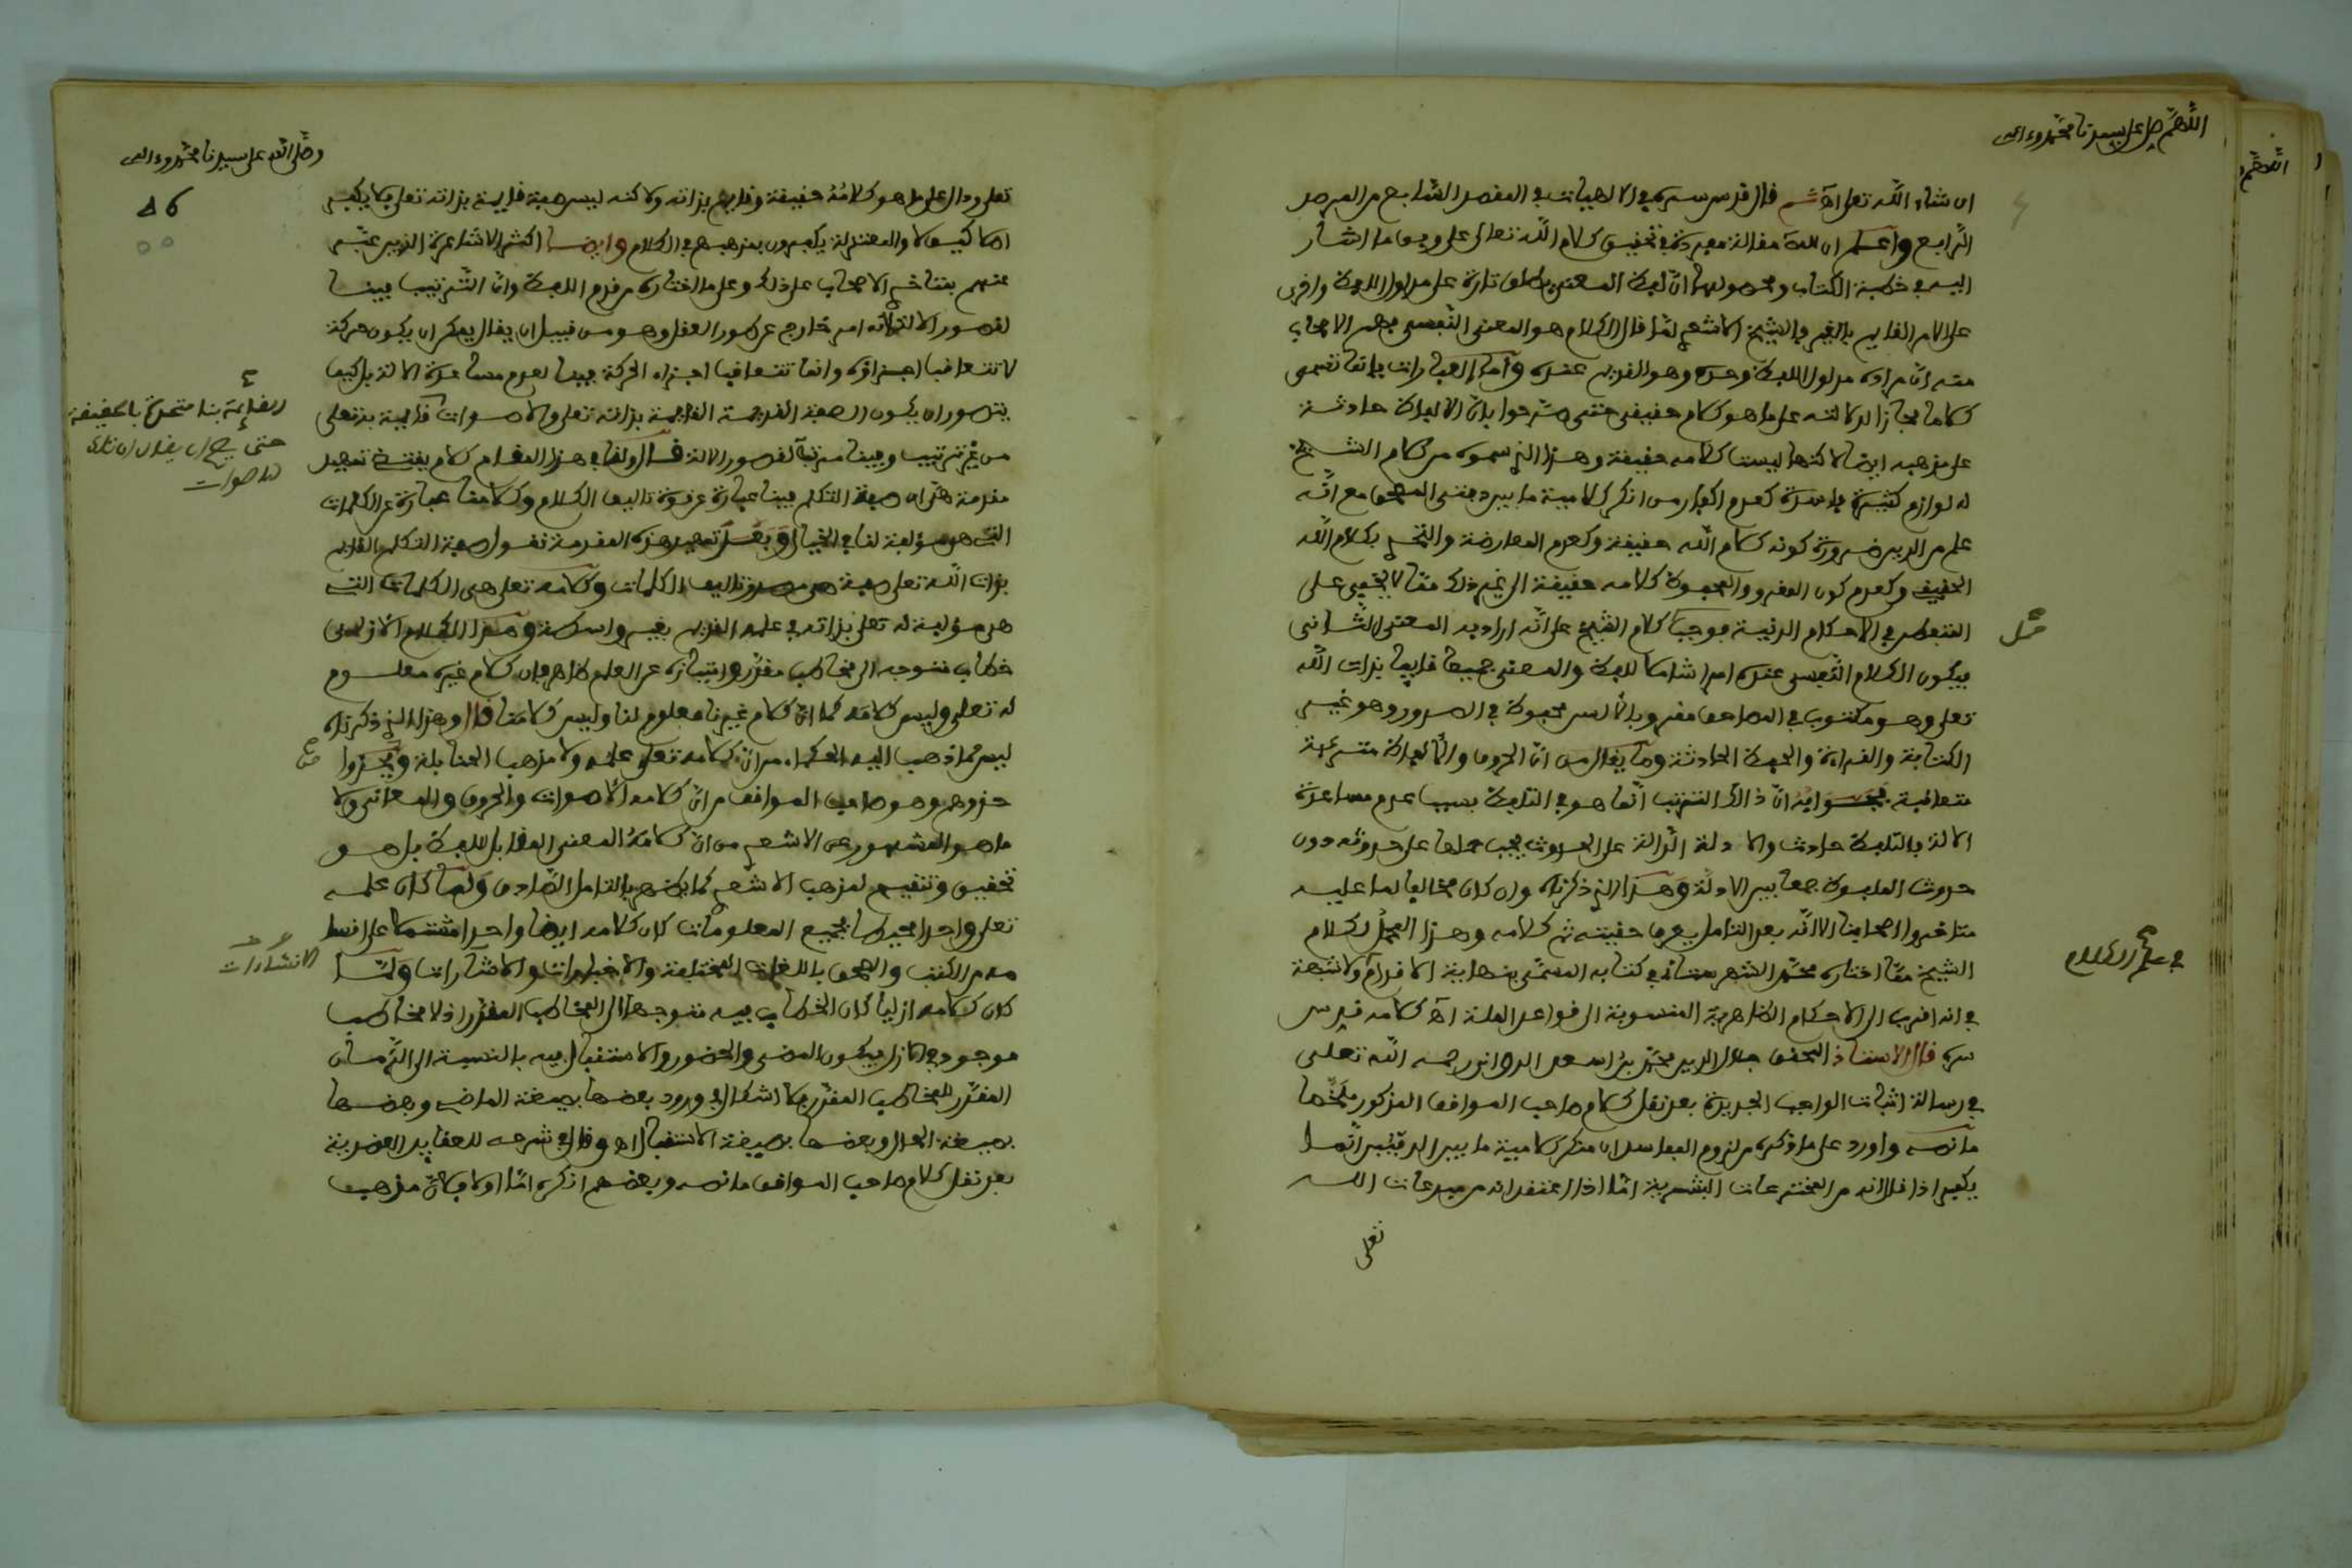 اللهم صل على سيدنا محمد وءاله
ان شاء الله تعلى اه ثم قال قدس سره في الالهيات في المقصد السابع من المرصد
الرابع واعلم ان للمص مقالة مفردة في تحقيق كلام الله تعالى على وفق ما اشار
اليه في خطبة الكتاب ومحصولها ان لفظ المعنى يطلق تارة على مدلول اللفظ واخرى
على الامر القايم بالغير فالشيخ الاشعري لما قال الكلام هو المعنى النفسي فهم الاصحاب
منه ان مراده مدلول اللفظ وحده وهو القديم عنده واما العبارات فانما تسمى
كلاما مجازا لدلالته على ما هو كلام حقيقي حتى صرحوا بان الالفاظ حادثة
على مذهبه ايضا لاكنها ليست كلامه حقيقة وهذا الذي فهموه من كلام الشيخ
له لوازم كثيرة فاسدة كعدم اكفار من انكر كلامية ما بين دفتي المصحف مع انه
علم من الدين ضرورة كونه كلام الله حقيقة وكعدم المعارضة والتحدي بكلام الله
الحقيقي وكعدم كون المقروو المحفوظ كلامه حقيقة الى غير ذلك مما لا يخفى على
المتفطن في الاحكام الدينية فوجب حمل كلام الشيخ على انه اراد به المعنى الثاني
فيكون الكلام النفسي عنده امرا شاملا للفظ والمعنى جميعا قايما بذات الله
تعلى وهو مكتوب في المصاحف مقرو بالالسن محفوظ في الصدور وهو غير
الكتابة والقراءة والحفظ الحادثة وما يقال من ان الحروف والالفاظ مترتبة
متعاقبة فجوابه ان ذالك الترتب انما هو في التلفظ بسبب عدم مساعدة
الالة فالتلفظ حادث والادلة الدالة على الحدوث يجب حملها على حدوثه دون
حدوث الملفوظ جمعا بين الادلة وهذا الذي ذكرناه وان كان مخالفا لما عليه
متاخروا اصحابنا الا انه بعد التامل يعرف حقيته ثم كلامه وهذا المحمل لكلام
الشيخ مما اختاره محمد الشهرستاني في كتابه المسمى بنهاية الاقدام ولا شبهة
في انه اقرب الى الاحكام الظاهرية المنسوبة الى قواعد الملة اه كلامه قدس
سره قال الاستاذ المحقق جلال الدين محمد بن اسعد الدواني رحمه الله تعلى
في رسالة اثبات الواجب الجديدة بعد نقل كلام صاحب المواقف المذكور ملخصا
ما نصه واورد على ما ذكره من لزوم المفاسد ان منكر كلامية ما بين الدفتين انما
يكفر اذا قال انه من المخترعات البشرية اما اذا اعتقد انه من مبدعات الله
تعلى
في علم الكلام
وصلى الله على سيدنا محمد وءاله
تعلى ودال على ما هو كلامه حقيقة وقايم بذاته ولاكنه ليس صفة قايمة بذاته تعلى فلا يكفر
اصلا كيف لا والمعتزلة يكفرون بمذهبهم في الكلام وايضا اكثر الاشاعرة الذين عبر
عنهم بمتاخري الاصحاب على ذلك وعلى ما اختاره من قدم اللفظ وان الترتيب فينا
لقصور الالة انه امر خارج عن طور العقل وهو من قبيل ان يقال يمكن ان يكون حركة
لا تتعاقب اجزاؤه وانما تتعاقب اجزاء الحركة فينا لعدم مساعدة الالة فكيف
يتصور ان يكون الصفة القديمة القايمة بذاته تعلى والاصوات قايمة به تعلى
من غير ترتيب وفينا مترتبة لقصور الالة قال ولنا في هذا المقام كلام يقتضي تمهيد
مقدمة هي ان صفة التكلم فينا عبارة عن قوة تاليف الكلام وكلامنا عبارة عن الكلمات
التي هي مولفة لنا في الخيال وبعد تمهيد هذه المقدمة نقول صفة التكلم القايم
بذات الله تعلى صفة هي مصدر تاليف الكلمات وكلامه تعلى هي الكلمات التي
هي مولفة له تعلى بذاته في علمه القديم بغير واسطة وهذا الكلام الازلي
خطاب متوجه الى مخاطب مقدر وامتيازه عن العلم ظاهر فان كلام غيره معلوم
له تعلى وليس كلامه كما ان كلام غيرنا معلوم لنا وليس كلامنا قال وهذا الذي ذكرناه
ليس مما ذهب اليه الحكماء من ان كلامه تعلى علمه ولا مذهب الحنابلة ومن حذوا
حذوهم وهو صاحب المواقف من ان كلامه الاصوات والحروف والمعاني ولا
ما هو المشهور عن الاشعري من ان كلامه المعنى المقابل للفظ بل هو
تحقيق وتنقيح لمذهب الاشعري كما يظهر بالتامل الصادق ولما كان علمه
تعلى واحدا محيطا بجميع المعلومات كان كلامه ايضا واحدا مشتملا على اقسامه
من الكتب والصحف باللغات المختلفة والاخبارات والانشاءات ولما
كان كلامه ازليا كان الخطاب فيه متوجها الى المخاطب المقدر اذ لا مخاطب
موجود في الازل فيكون المضي والحضور والاستقبال فيه بالنسبة الى الزمان
المقدر للمخاطب المقدر فلا اشكال في ورود بعضها بصيغة الماضي وبعضها
بصيغة الحال وبعضها بصيغة الاستقبال اه وقال في شرحه للعقايد العضدية
بعد نقل كلام صاحب المواقف ما نصه وبعضهم انكره اما اولا فلان مذهب
القايمة بنا متحدة بالحقيقة
حتى يصح ان يقال ان تلك
الاصوات
الانشاءات